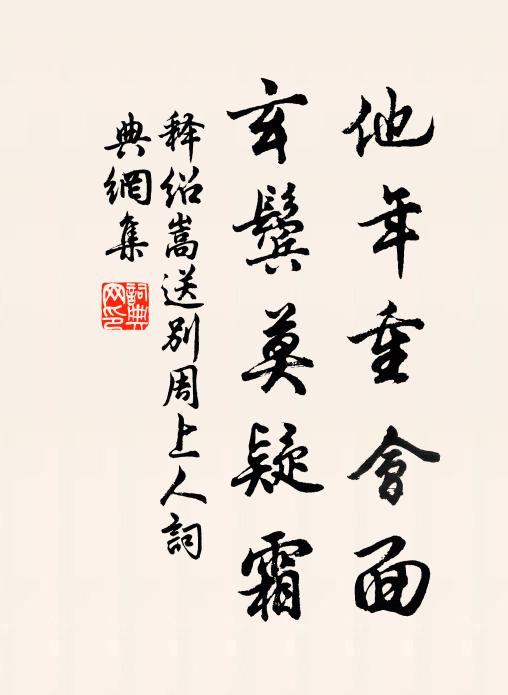 他年重會面
玄鬢莫疑霜
释紹嵩送别周上人詞
典網集
詞典网印